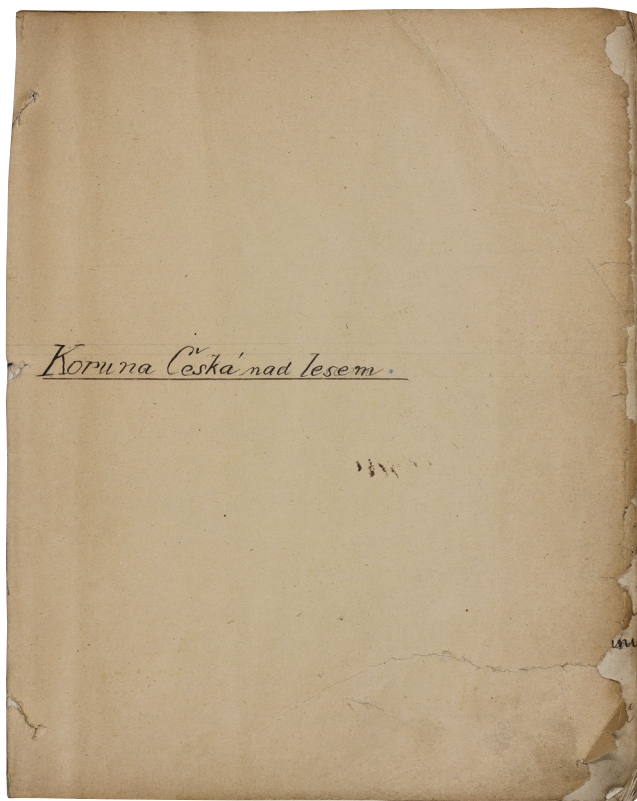 Koruna Česká nad lesem.